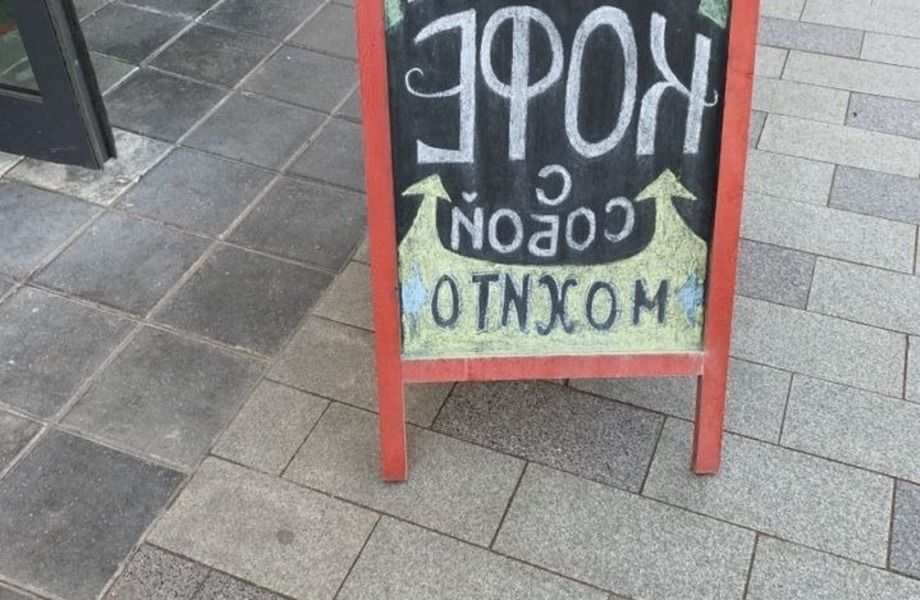 КОФЕ
С
СОБОЙ
МОХИТО